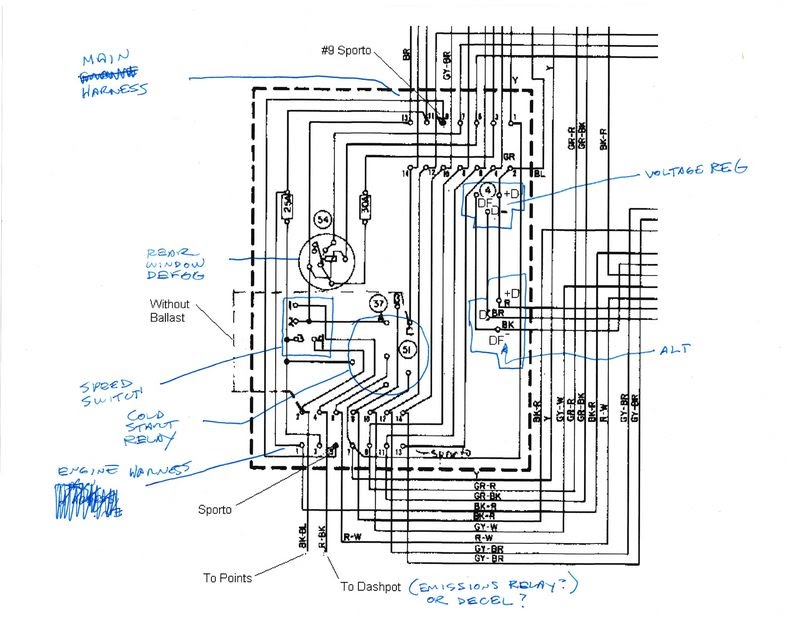 MAIN
HARNESS
#9 Sporto
BR
GY-BR
Y
Y
GR-R
GR-BK
BK-R
13 11 7 3 1
GR
BL
14 12 10 8 6 4 2
VOLTAGE REG
4
+D
DF
D-
25A
30A
54
REAR
WINDOW
DEFOG
Without
Ballast
1
2
3
37
51
+D
R
BR
BK
DF
ALT
SPEED
SWITCH
COLD
START
RELAY
2 4 10 12 14
1 3 7 11 13
SPORTO
ENGINE HARNESS
Sporto
BK-R
Y
GY-W
GR-R
GR-BK
BK-R
R-W
GY-BR
GY-BR
Y
GR-R
GR-BK
BK-R
BK-R
GY-W
R-W
R-W
GY-BR
GY-BR
BK-BL
R-BK
To Points
To Dashpot (EMISSIONS RELAY?)
OR DECEL?